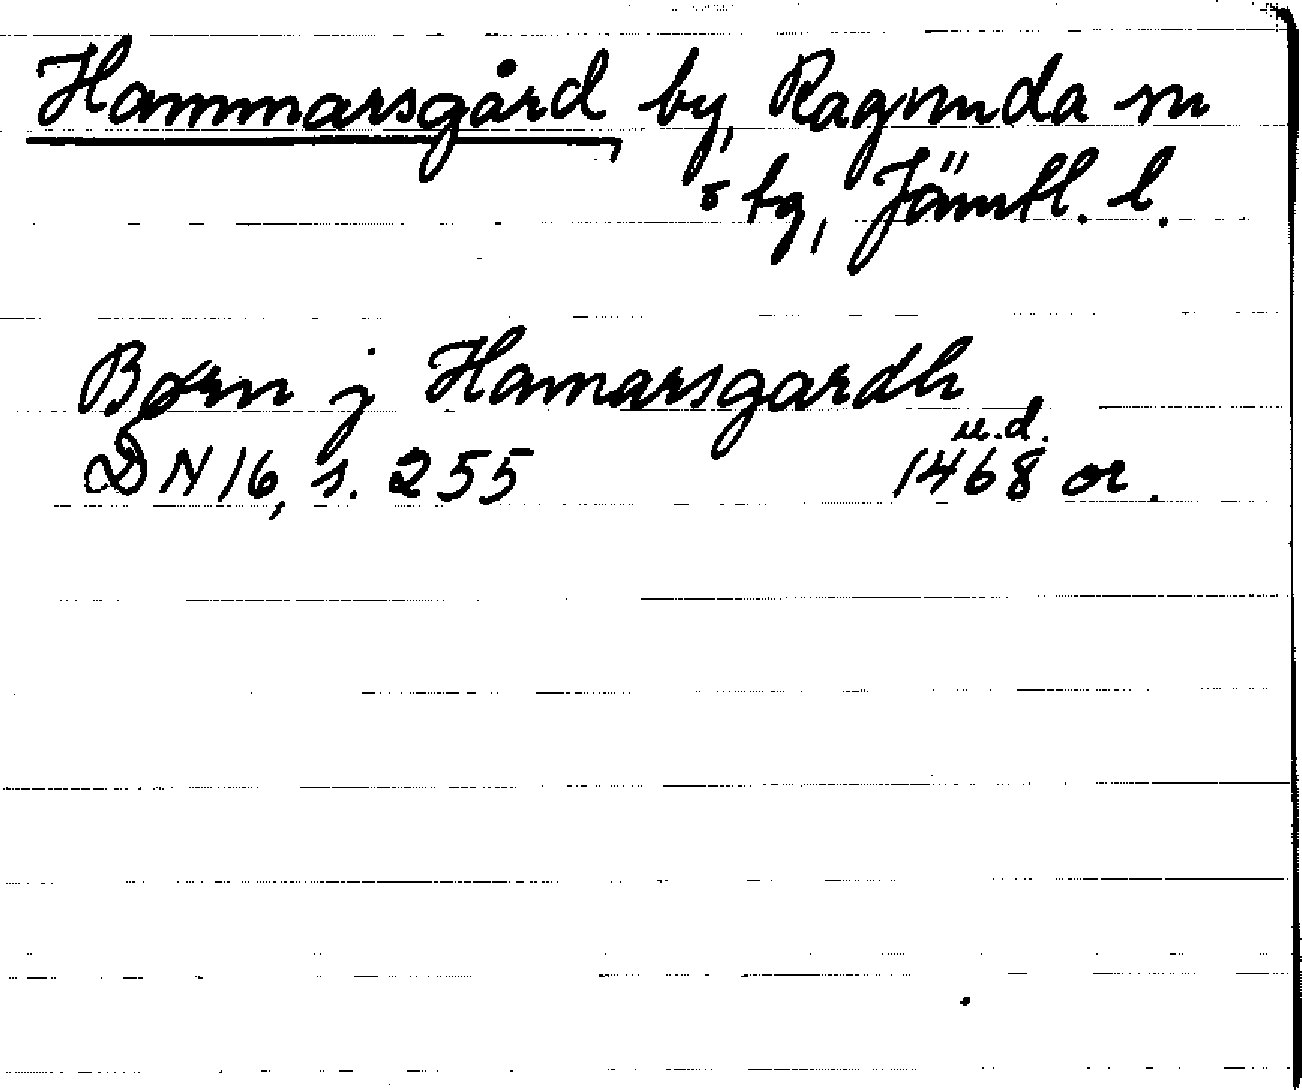 Hammarsgård, by, Ragunda sn
o tg, Jämtl. l.
Børn j Hamarsgardh
u.d.
DN 16, s. 255 1468 or.